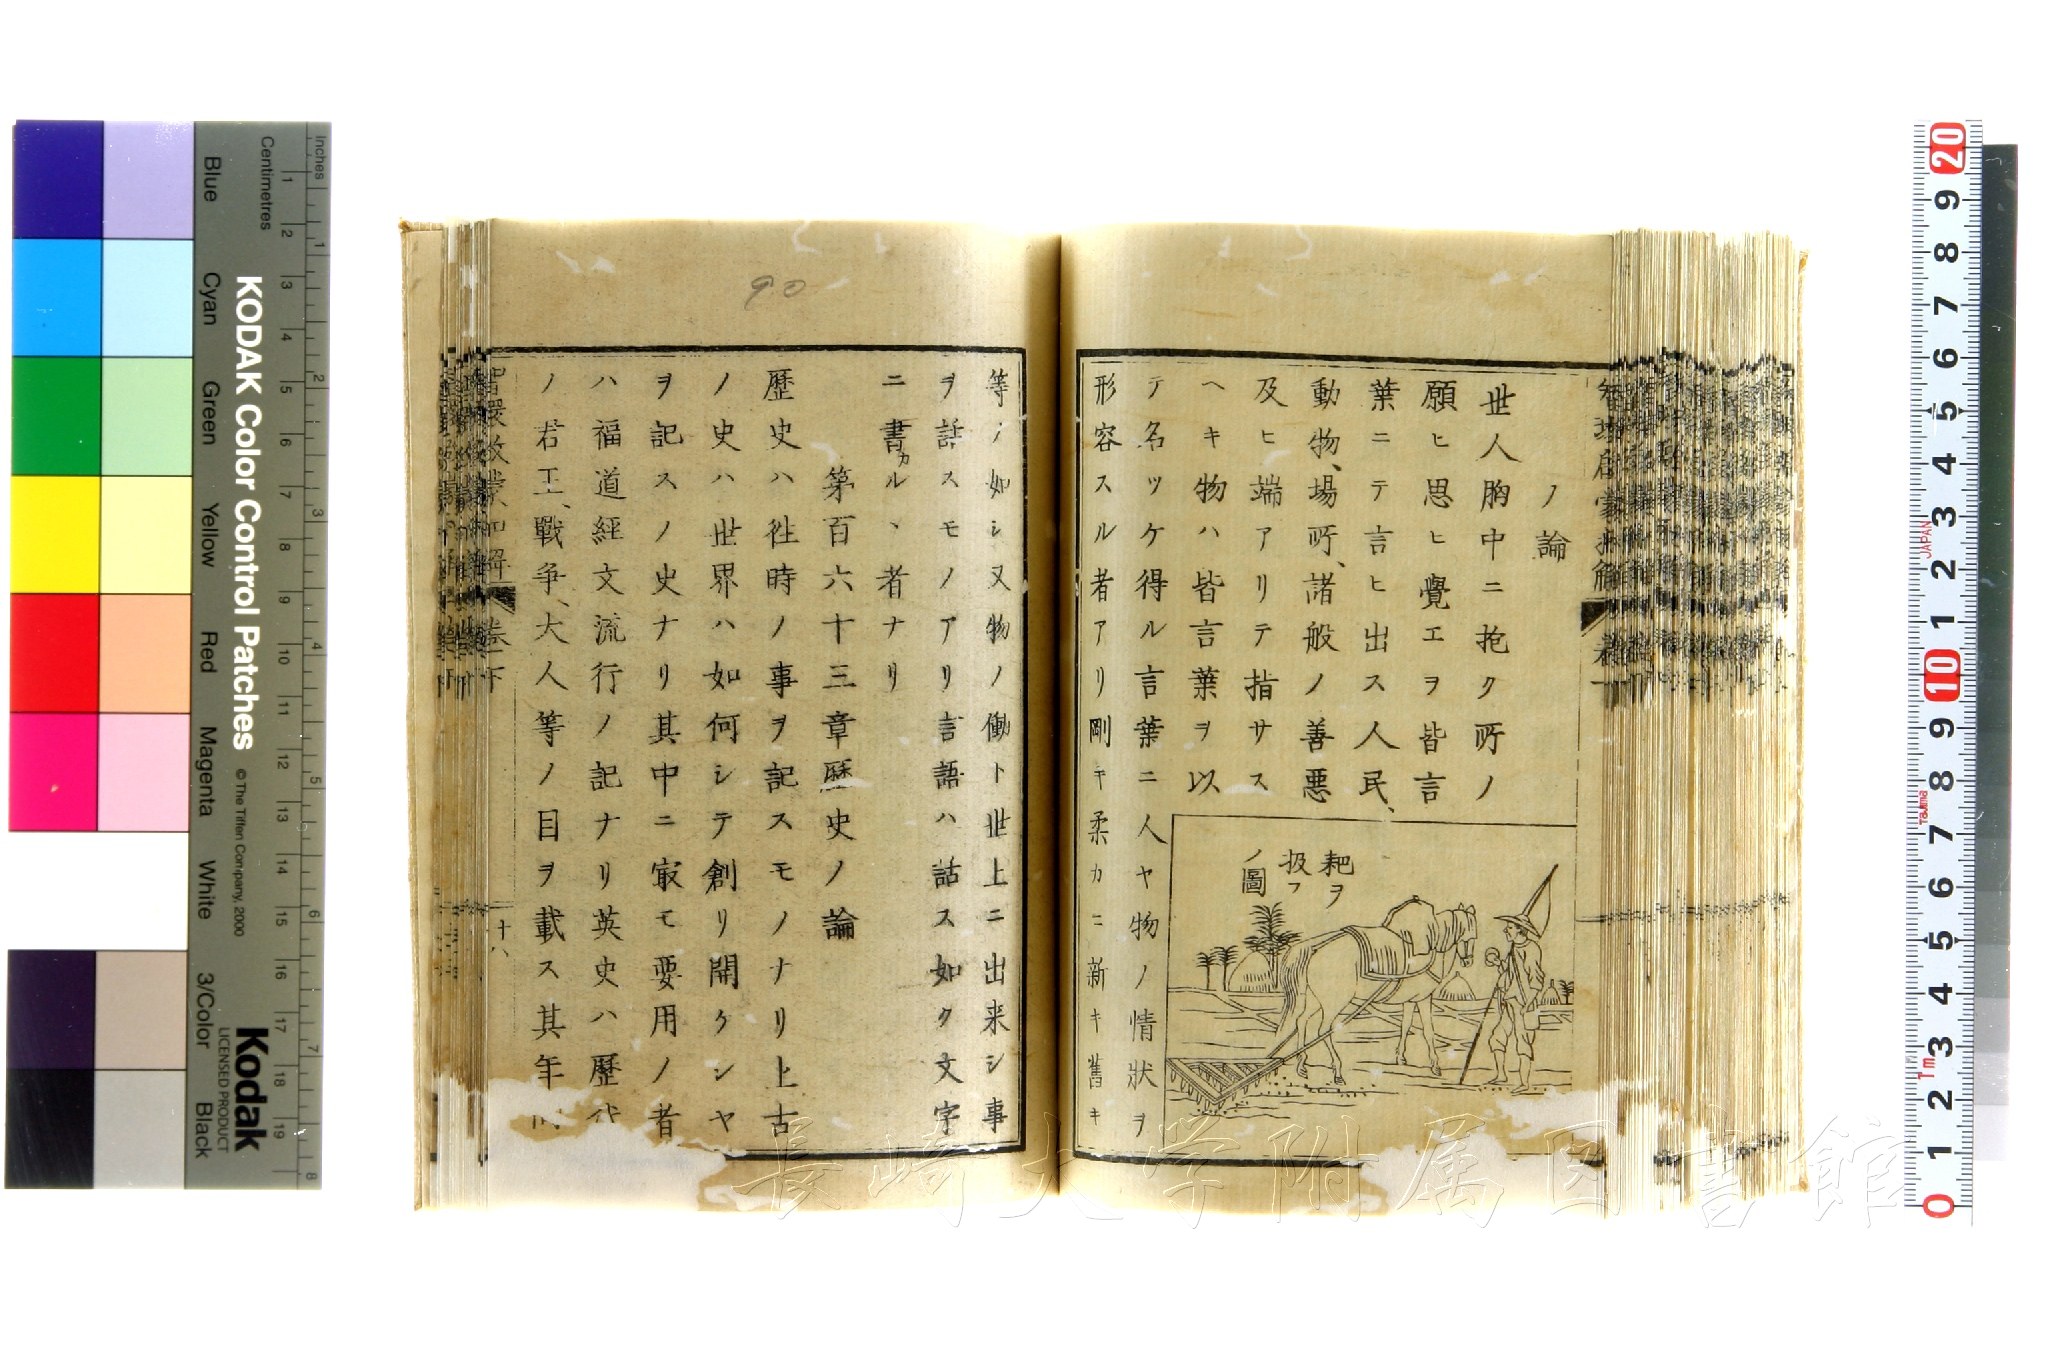 ノ論
世人胸中ニ抱ク所ノ
願ヒ思ヒ覺エヲ皆言
葉ニテ言ヒ出ス人民、
動物、場所、諸般ノ善悪
及ヒ端アリテ指サス
ヘキ物ハ皆言葉ヲ以
テ名ツケ得ル言葉ニ人ヤ物ノ情狀ヲ
形容スル者アリ剛キ柔カニ新キ舊キ
耙ヲ
扱フ
ノ圖
等ノ如シ又物ノ働ト世上ニ出来シ事
ヲ話スモノアリ言語ハ話ス如ク文字
ニ書カルヽ者ナリ
第百六十三章歷史ノ論
歷史ハ徃時ノ事ヲ記スモノナリ上古
ノ史ハ世界ハ如何シテ創リ開ケシヤ
ヲ記スノ史ナリ其中ニ冣モ要用ノ者
ハ福道經文流行ノ記ナリ英史ハ歷代
ノ君王、戰争、大人等ノ目ヲ載ス其年
智環啟蒙和解 卷下
十八
90
長崎大学附属図書館
KODAK Color Control Patches
© The Tiffen Company, 2000
Kodak
LICENSED PRODUCT
Inches
Centimetres
Blue
Cyan
Green
Yellow
Red
Magenta
White
3/Color
Black
1 2 3 4 5 6 7 8
1 2 3 4 5 6 7 8 9 10 11 12 13 14 15 16 17 18 19
20 9 8 7 6 5 4 3 2 1 10 9 8 7 6 5 4 3 2 1 0
JAPAN
Tajima